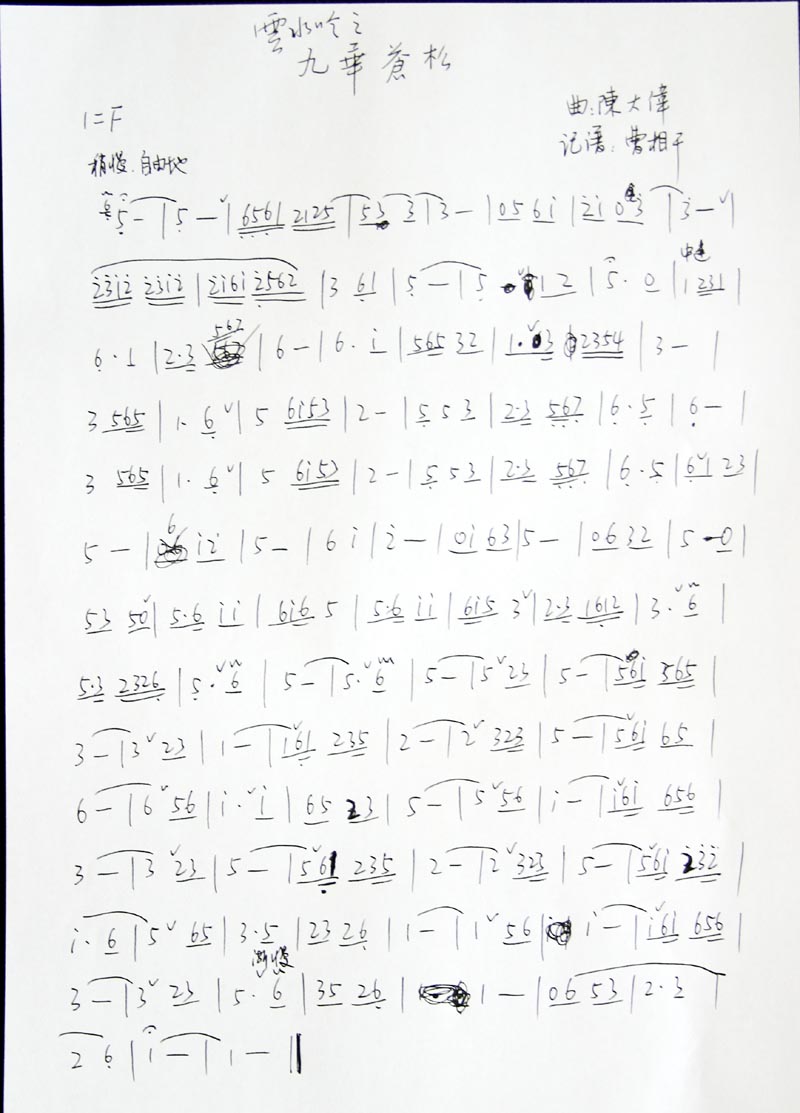 雲水吟之
九華蒼松
1=F
曲:陳大偉
记谱:曹相干
稍慢.自由地
5 — | 5 — ˅ | 6561 2125 | 53 3 | 3 — | 0 5 6 i | 2̇ i 0 3̇ | 3̇ — ˅ |
2̇3̇i2̇ 2̇3̇i2̇ | 2̇i6i 2̇562 | 3 61 | 5 — | 5 12 | 5 · 0 | 中速 1 231 |
6 · 1 | 2·3 567 | 6 — | 6 · i | 565 32 | 1 · ˅3 2354 | 3 — |
3 565 | 1 · 6 ˅ | 5 6i53 | 2 — | 5 5 3 | 2·3 567 | 6 · 5 | 6 — |
3 565 | 1 · 6 ˅ | 5 6i53 | 2 — | 5 5 3 | 2·3 567 | 6 · 5 | 6 ˅ 1 23 |
5 — | 6 i2̇ | 5 — | 6 i | 2̇ — | 0i 63 | 5 — | 06 32 | 5 — 0 |
53 50 ˅ | 5·6 ii | 6i6 5 | 5·6 ii | 6i5 3 ˅ | 2·3 1612 | 3 · ˅ 6 |
5·3 2326 | 5 · ˅ 6 | 5 — | 5 · ˅ 6 | 5 — | 5 ˅ 23 | 5 — | 56i 565 |
3 — | 3 ˅ 23 | 1 — | 1 ˅ 61 235 | 2 — | 2 ˅ 323 | 5 — | 5 ˅ 6i 65 |
6 — | 6 ˅ 56 | i · ˅ i | 65 23 | 5 — | 5 ˅ 56 | i — | i ˅ 6i 656 |
3 — | 3 ˅ 23 | 5 — | 5 ˅ 61 235 | 2 — | 2 ˅ 323 | 5 — | 5 ˅ 6i 2̇3̇2̇ |
i · 6 | 5 ˅ 65 | 3 · 5 | 23 26 | 1 — | 1 ˅ 56 | i — | i ˅ 6i 656 |
渐慢
3 — | 3 ˅ 23 | 5 · ˅ 6 | 35 26 | 1 — | 06 53 | 2 · 3 |
2 6 | 1 — | 1 — ‖